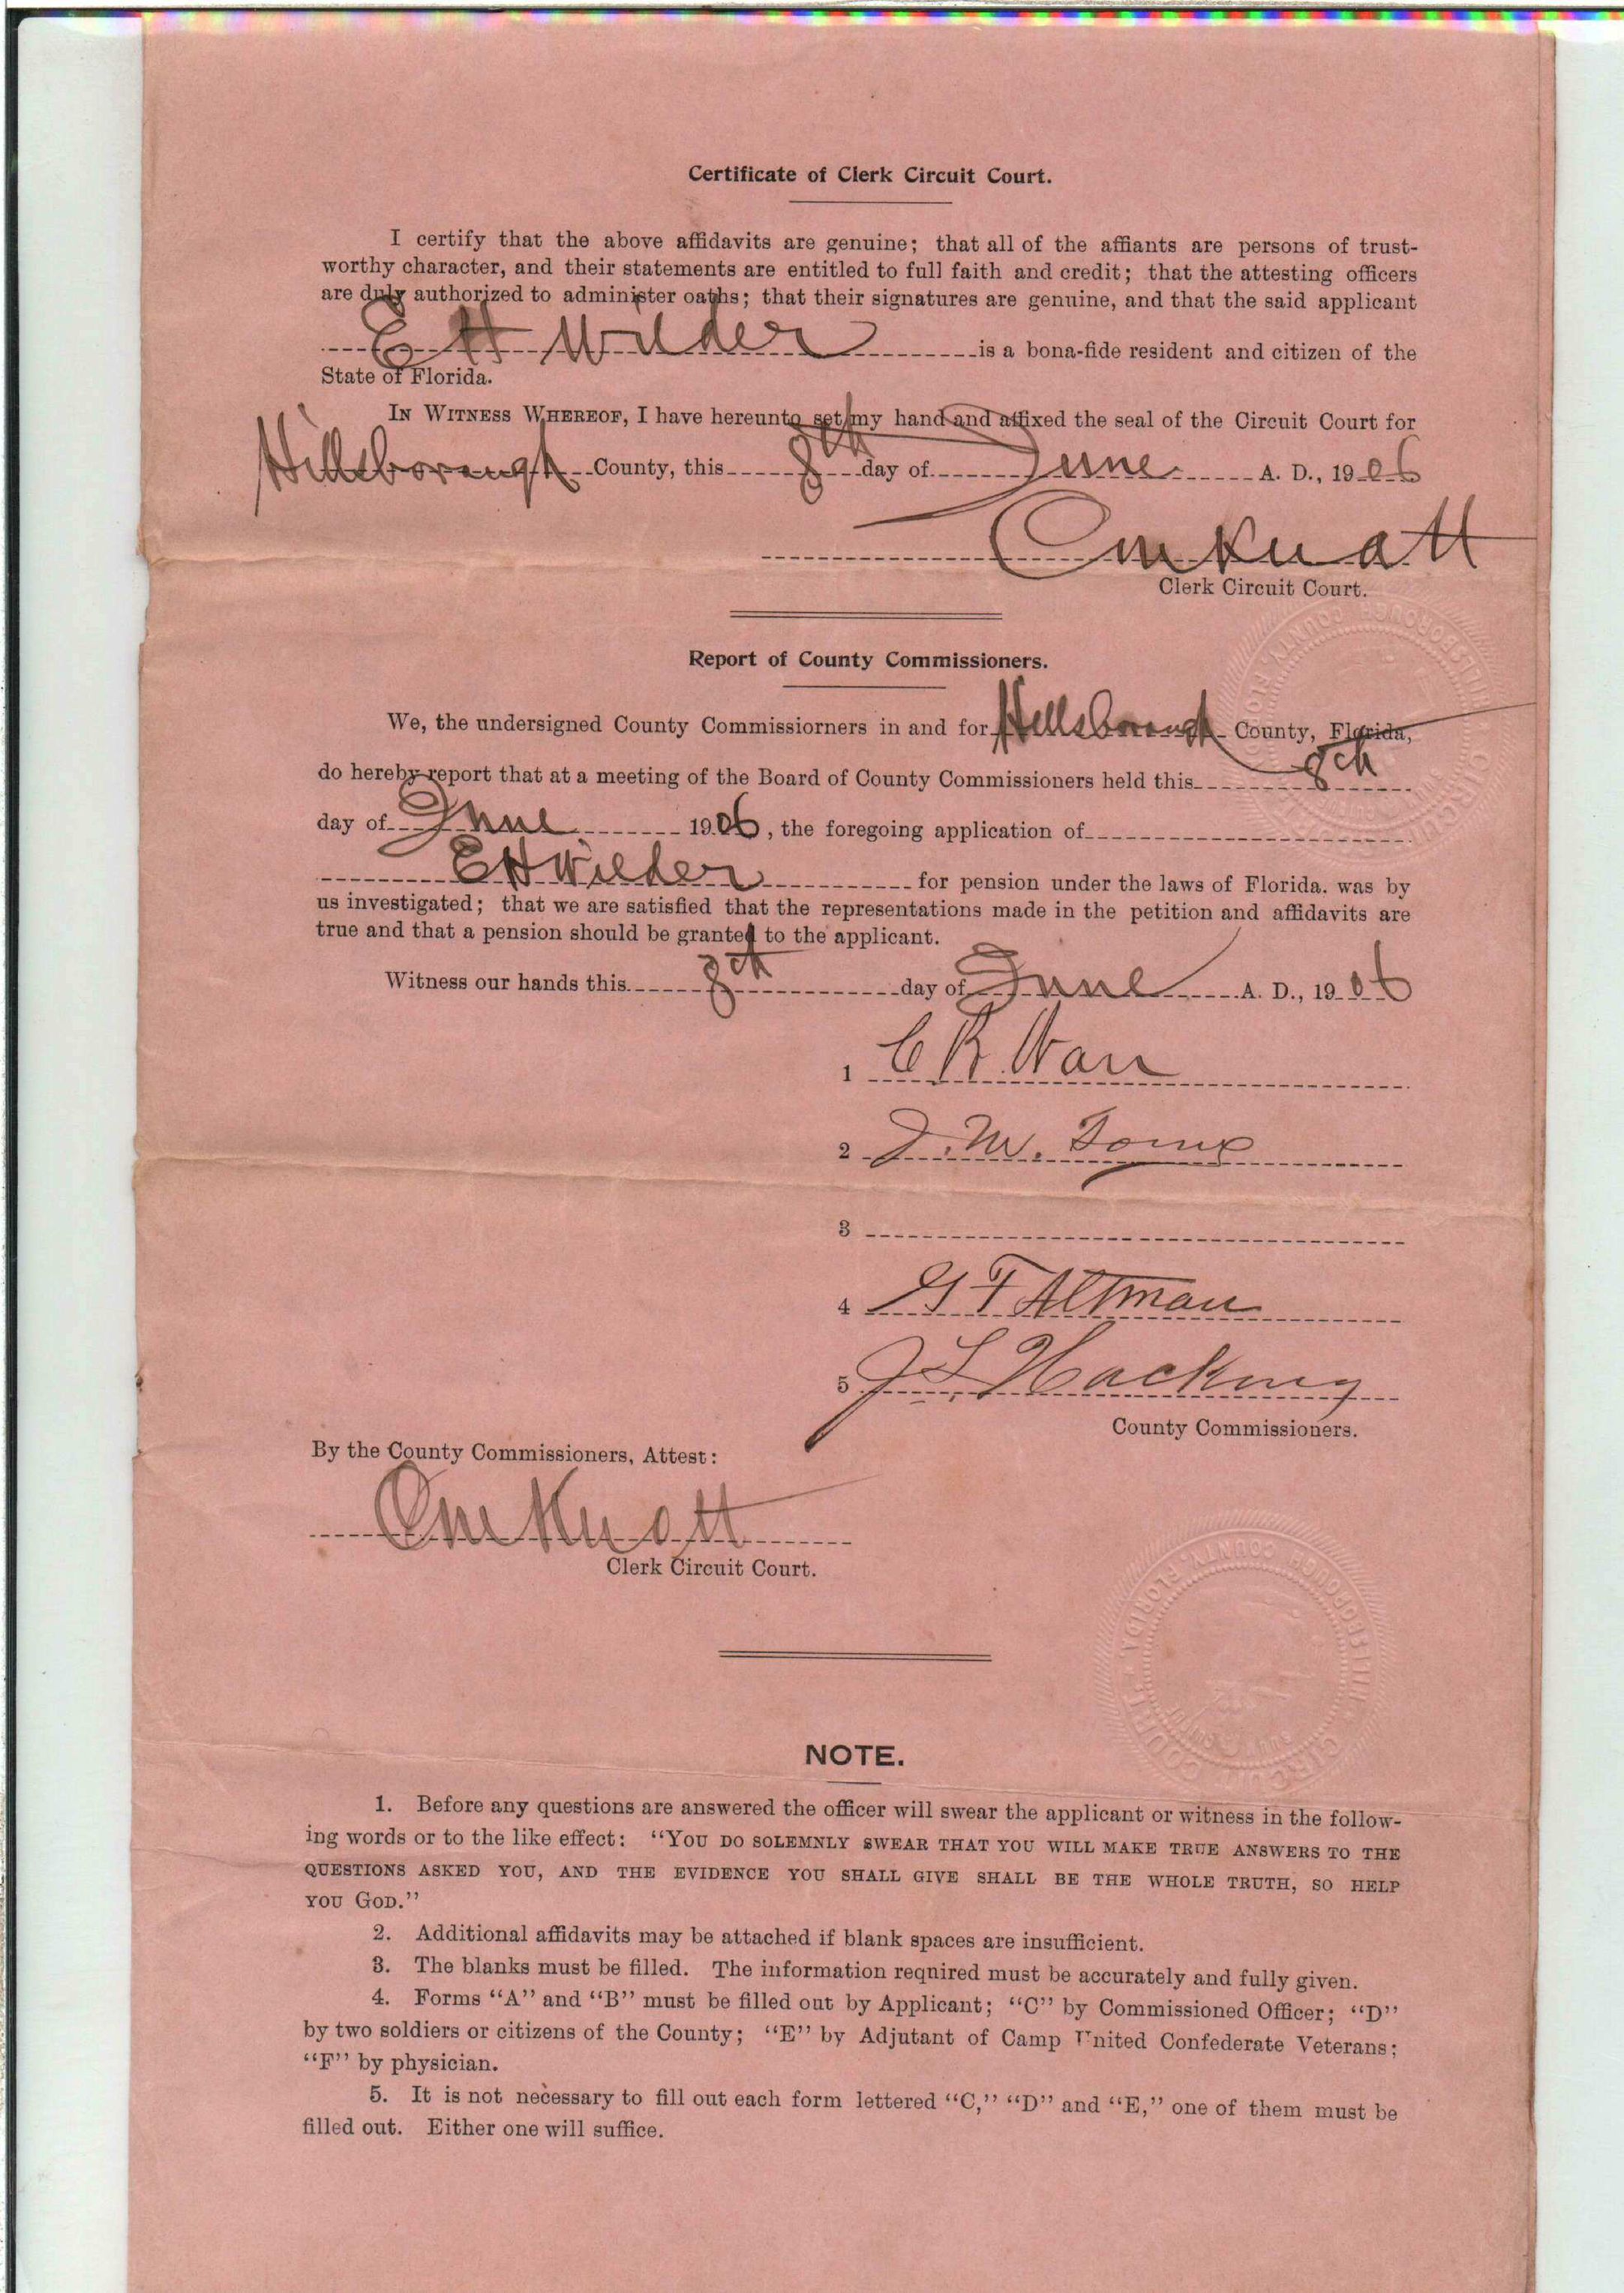 Certificate of Clerk Circuit Court.
I certify that the above affidavits are genuine; that all of the affiants are persons of trust-
worthy character, and their statements are entitled to full faith and credit; that the attesting officers
are duly authorized to administer oaths; that their signatures are genuine, and that the said applicant
E H Wilder is a bona-fide resident and citizen of the
State of Florida.
IN WITNESS WHEREOF, I have hereunto set my hand and affixed the seal of the Circuit Court for
Hillsborough County, this 8th day of June A. D., 1906
Clerk Circuit Court.
Report of County Commissioners.
We, the undersigned County Commissiorners in and for Hillsborough County, Florida,
do hereby report that at a meeting of the Board of County Commissioners held this 8th
day of June 1906, the foregoing application of
E H Wilder for pension under the laws of Florida. was by
us investigated; that we are satisfied that the representations made in the petition and affidavits are
true and that a pension should be granted to the applicant.
Witness our hands this 8th day of June A. D., 1906
1 C R
2 J. W.
3
4 G T Altman
5 J L Hackney
County Commissioners.
By the County Commissioners, Attest:
Clerk Circuit Court.
HILLSBOROUGH COUNTY, FLORIDA
CIRCUIT COURT
NOTE.
1. Before any questions are answered the officer will swear the applicant or witness in the follow-
ing words or to the like effect: "YOU DO SOLEMNLY SWEAR THAT YOU WILL MAKE TRUE ANSWERS TO THE
QUESTIONS ASKED YOU, AND THE EVIDENCE YOU SHALL GIVE SHALL BE THE WHOLE TRUTH, SO HELP
YOU GOD."
2. Additional affidavits may be attached if blank spaces are insufficient.
3. The blanks must be filled. The information reqnired must be accurately and fully given.
4. Forms "A" and "B" must be filled out by Applicant; "C" by Commissioned Officer; "D"
by two soldiers or citizens of the County; "E" by Adjutant of Camp United Confederate Veterans;
"F" by physician.
5. It is not necessary to fill out each form lettered "C," "D" and "E," one of them must be
filled out. Either one will suffice.